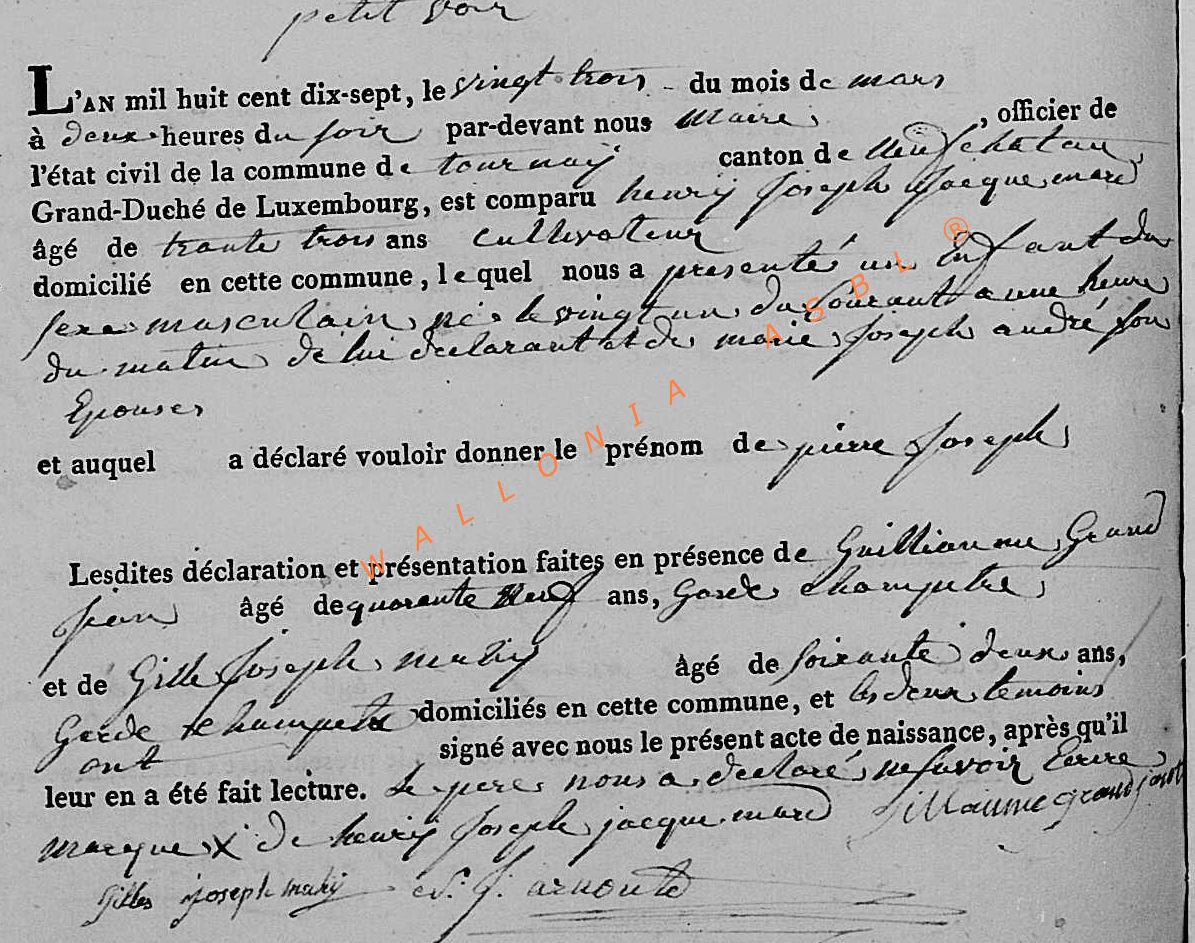 petit voir
L'AN mil huit cent dix-sept, le vingt trois du mois de mars
à deux heures du soir par-devant nous maire , officier de
l'état civil de la commune de tournay canton de neufchateau
Grand-Duché de Luxembourg, est comparu henry Joseph Jacquemard
âgé de trante trois ans Cultivateur
domicilié en cette commune, lequel nous a presenté un Enfant du
sexe masculain né le vingt un du Courant a une heure
du matin de lui declarant et de marie Joseph andré son
Epouse
et auquel a déclaré vouloir donner le prénom de pierre Joseph
WALLONIA ASBL ®
Lesdites déclaration et présentation faites en présence de Guilliaume Grand
jean âgé de quarante neuf ans, Garde champetre
et de Gille Joseph mahy âgé de soixante deux ans,
Garde champetre domiciliés en cette commune, et les deux temoins
ont signé avec nous le présent acte de naissance, après qu'il
leur en a été fait lecture. Le pere nous a declaré ne savoir Ecrire
marque X de henry Joseph jacquemard Gillaume grand
Gilles joseph mahy J. arnould